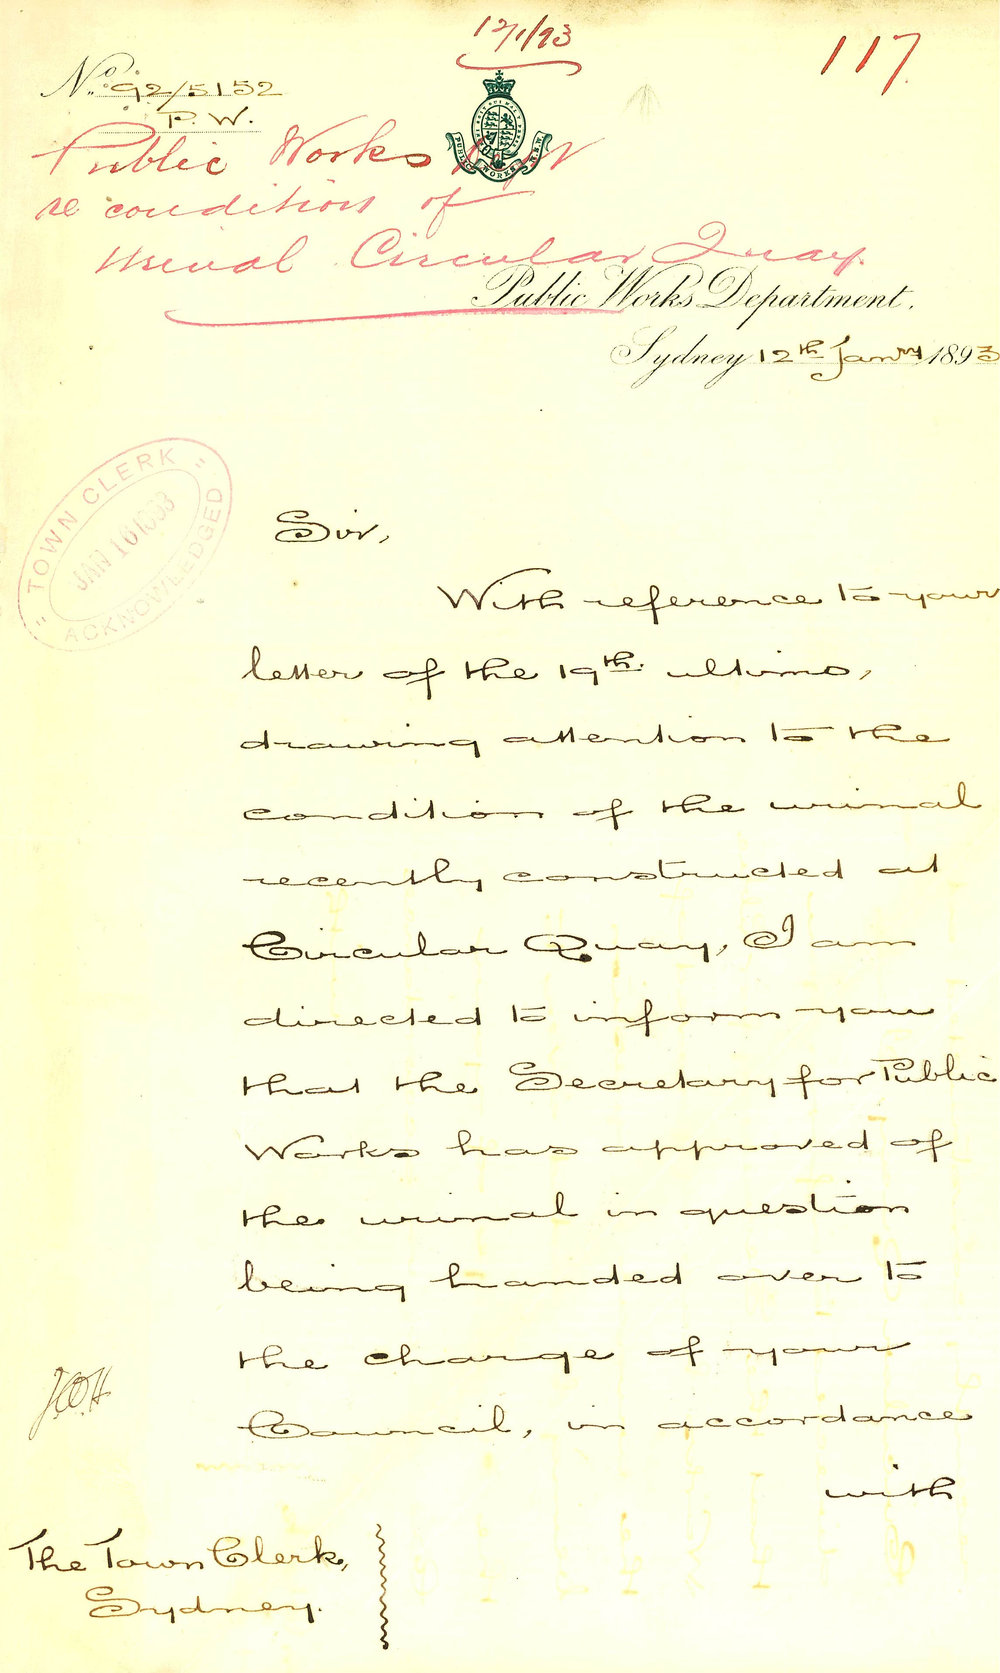 12/1/93
117.
No. 92/5152
P. W.
Public Works Dept
re condition of
Urinal Circular Quay.
PUBLIC WORKS N.S.W.
Public Works Department.
Sydney 12th Janry 1893
"TOWN CLERK"
JAN 16 1893
ACKNOWLEDGED
Sir,
With reference to your
letter of the 19th. ultimo,
drawing attention to the
condition of the urinal
recently constructed at
Circular Quay, I am
directed to inform you
that the Secretary for Public
Works has approved of
the urinal in question
being handed over to
the charge of your
Council, in accordance
with
The Town Clerk,
Sydney.